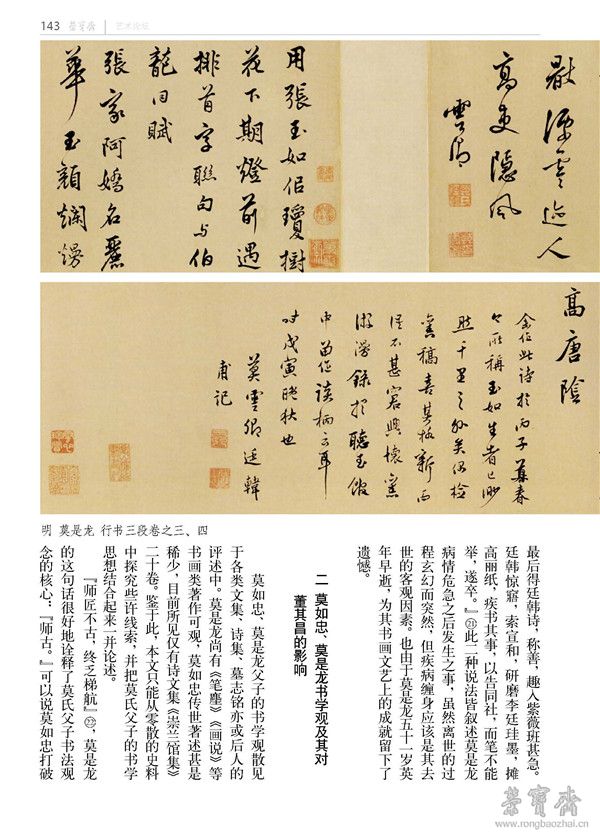 143 荣宝斋 艺术论坛
歌漂麦逸人
高吏隐风
云卿
用張玉如佰瓊樹
花下期燈前遇
排首字聯句与伯
龍同賦
張家阿嬌名麗
華玉顏爛熳
高唐陰
余作此詩於丙子暮春
所稱玉如生者已
千里之外矣偶檢
舊稿喜其格新而
不甚寄興懷
游漫錄於聽玉館
中留作談柄云耳
时戊寅晚秋也
莫雲卿廷韓
甫記
明 莫是龙 行书三段卷之三、四
最后得廷韩诗，称善，趣入紫薇班甚急。
廷韩惊寤，索宣和，研磨李廷珪墨，摊
高丽纸，疾书其事，以告同社，而笔不能
举，遂卒。』㉑此二种说法皆叙述莫是龙
病情危急之后发生之事，虽然离世的过
程玄幻而突然，但疾病缠身应该是其去
世的客观因素。也由于莫是龙五十一岁英
年早逝，为其书画文艺上的成就留下了
遗憾。
二 莫如忠、莫是龙书学观及其对
董其昌的影响
莫如忠、莫是龙父子的书学观散见
于各类文集、诗集、墓志铭亦或后人的
评述中。莫是龙尚有《笔麈》《画说》等
书画类著作可观，莫如忠传世著述甚是
稀少，目前所见仅有诗文集《崇兰馆集》
二十卷。鉴于此，本文只能从零散的史料
中探究些许线索，并把莫氏父子的书学
思想结合起来一并论述。
『师匠不古，终乏梯航』㉒，莫是龙
的这句话很好地诠释了莫氏父子书法观
念的核心：『师古。』可以说莫如忠打破
荣宝斋
www.rongbaozhai.cn